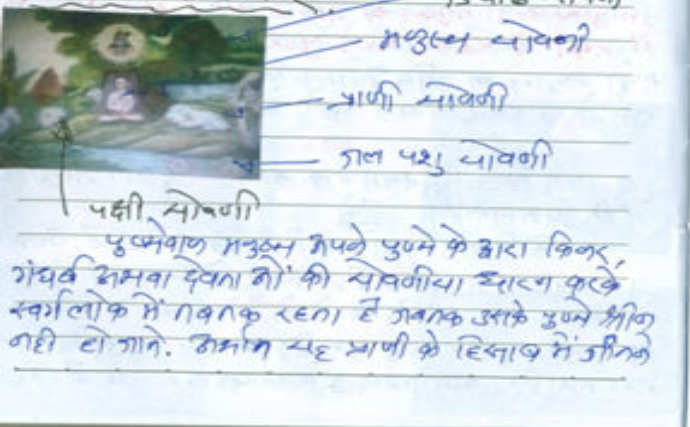 मनुष्य योवणी
प्राणी योवणी
जल पशु योवणी
पक्षी योवणी
पुण्येवान मनुष्य अपने पुण्ये के द्वारा किन्नर,
गंधर्व अथवा देवताओं की योवणीया धारन करके
स्वर्गलोक में तबतक रहता है जबतक उसके पुण्ये क्षीण
नही हो जाते. अर्थात यह प्राणी के हिसाब में जीतने